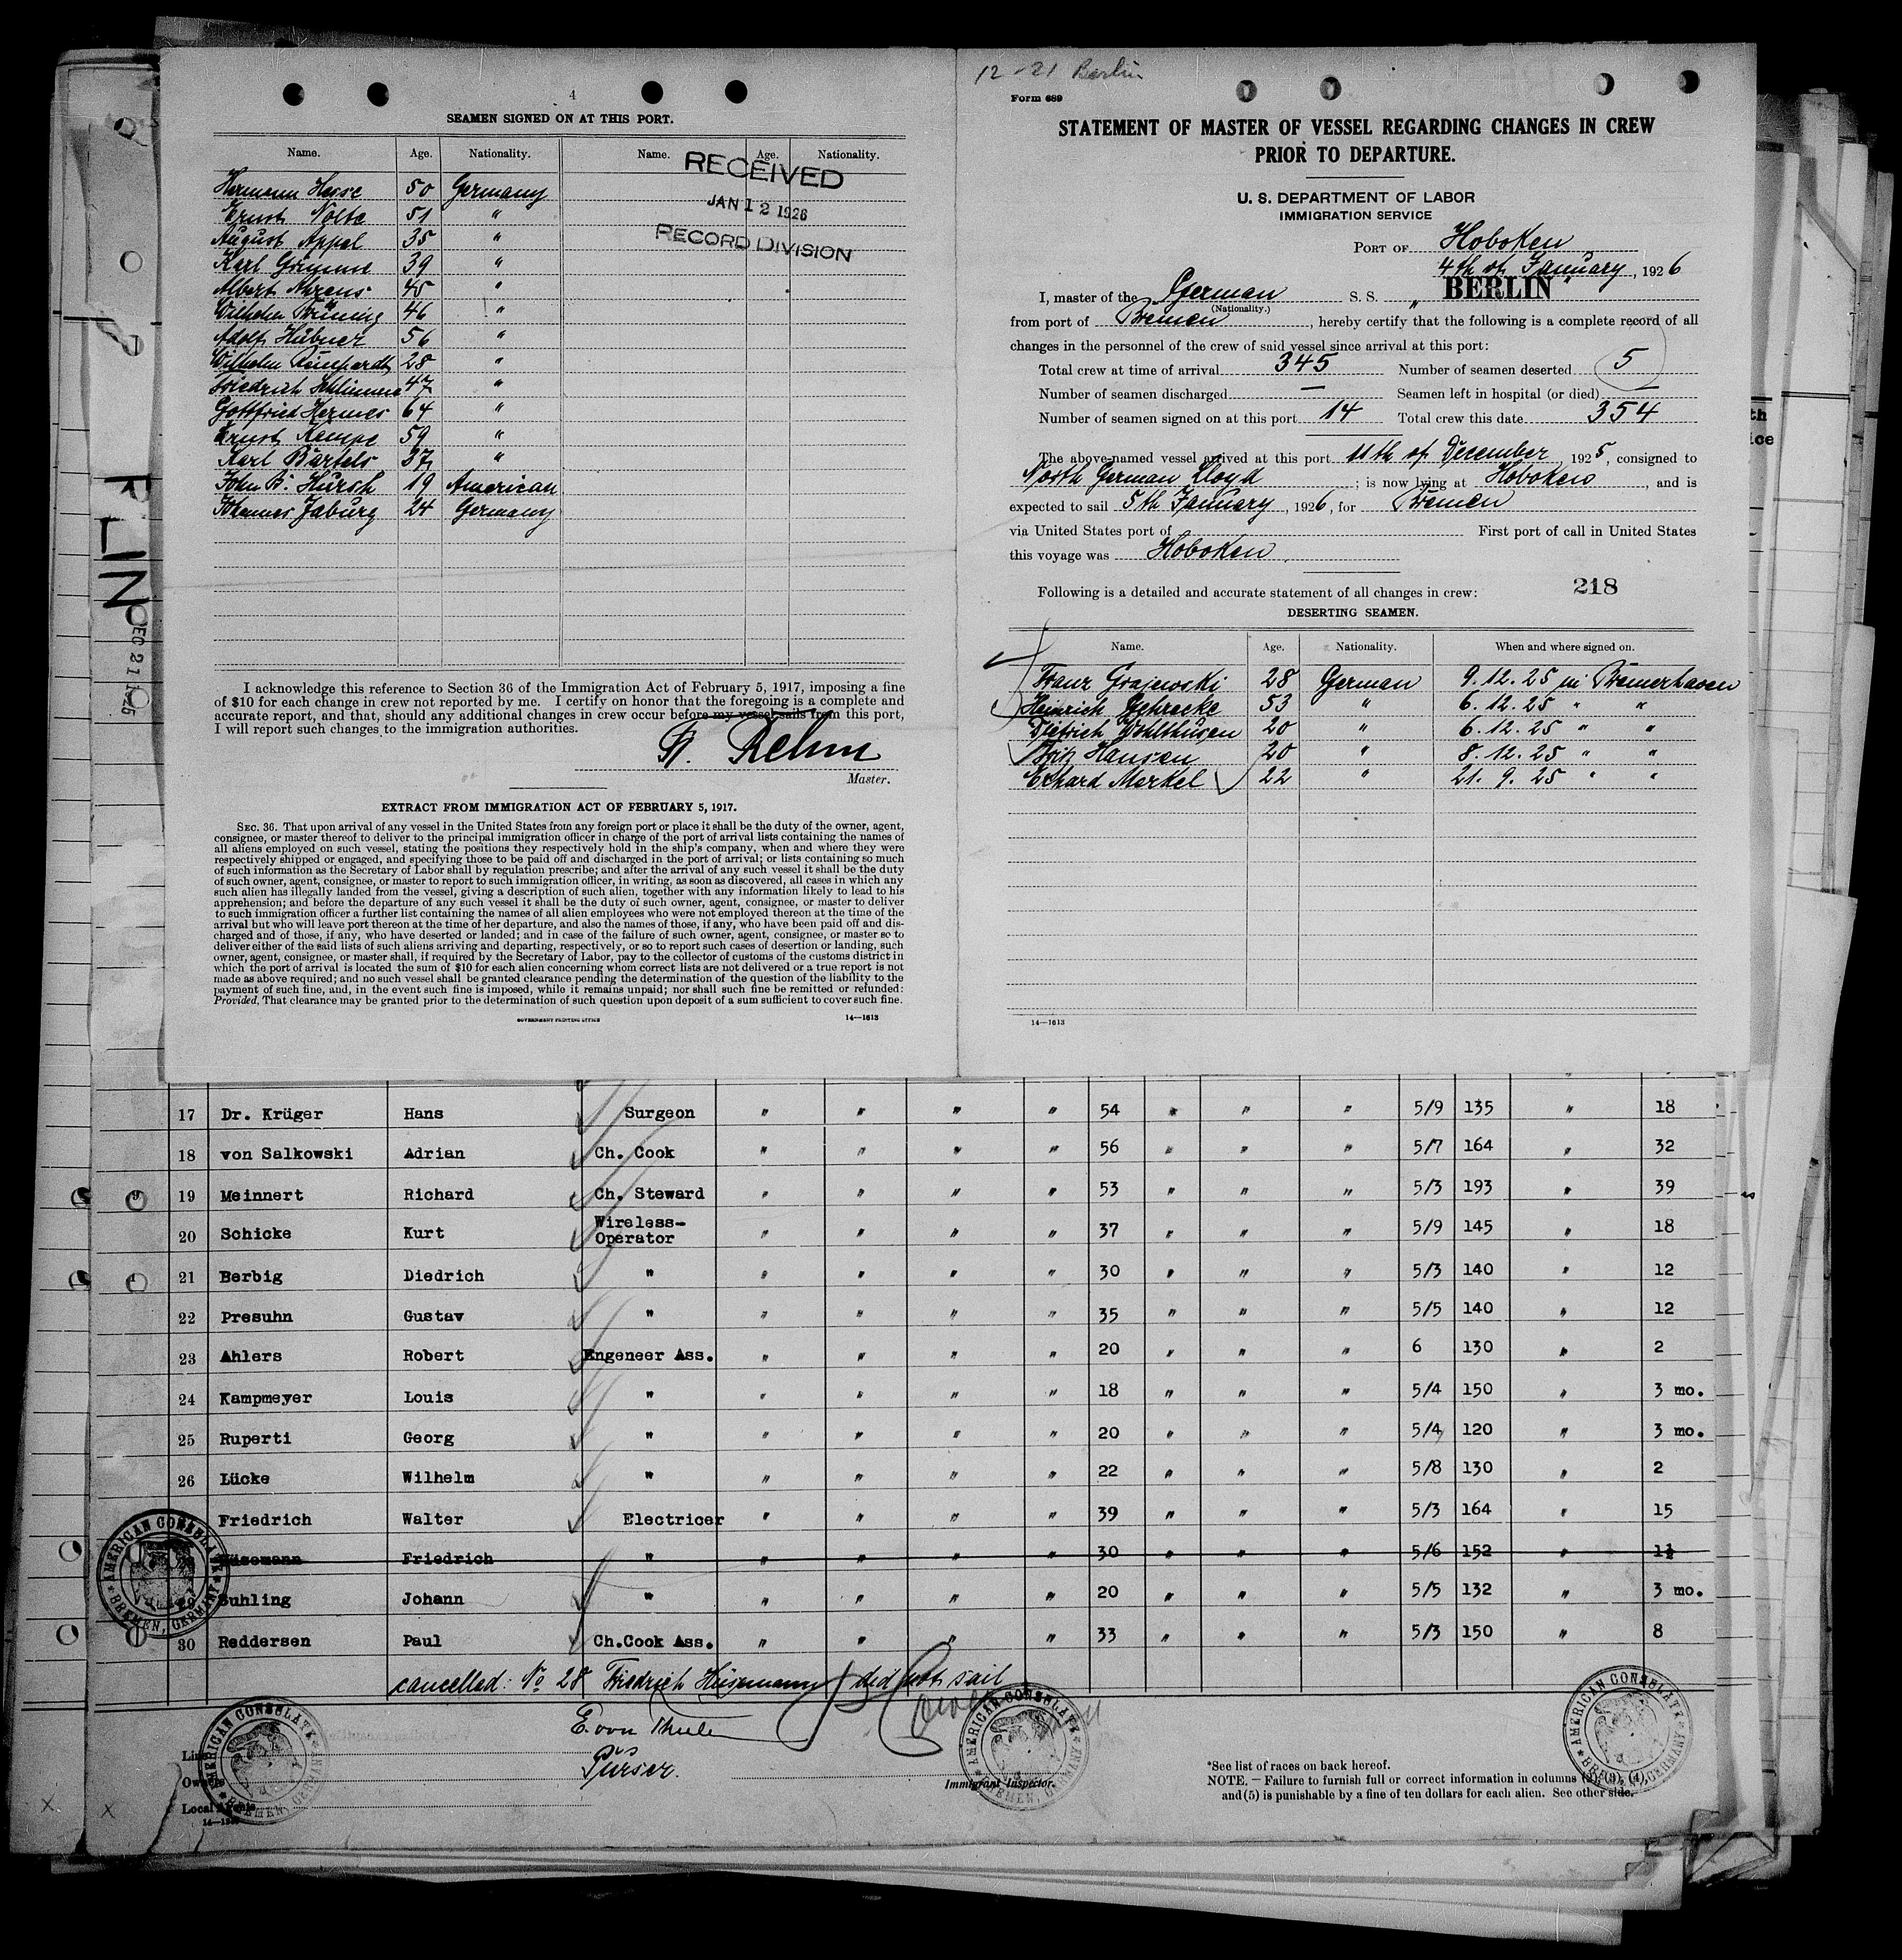 4
SEAMEN SIGNED ON AT THIS PORT.
Name. Age. Nationality. Name. Age. Nationality.
RECEIVED
JAN 12 1926
RECORD DIVISION
Hermann Hesse 50 Germany
Ernst Nolte 51 "
August Appel 35 "
Karl Grimme 39 "
Albert Ahrens 45 "
Wilhelm Brüning 46 "
Adolf Hübner 56 "
Wilhelm 28 "
Friedrich Schlimme 47 "
Gottfried Hermes 64 "
Ernst Kempe 59 "
Karl Bartels 37 "
John B. Hursh 19 American
Johannes Jaburg 24 Germany
I acknowledge this reference to Section 36 of the Immigration Act of February 5, 1917, imposing a fine
of $10 for each change in crew not reported by me. I certify on honor that the foregoing is a complete and
accurate report, and that, should any additional changes in crew occur before my vessel sails from this port,
I will report such changes to the immigration authorities.
Rehm
Master.
EXTRACT FROM IMMIGRATION ACT OF FEBRUARY 5, 1917.
SEC. 36. That upon arrival of any vessel in the United States from any foreign port or place it shall be the duty of the owner, agent,
consignee, or master thereof to deliver to the principal immigration officer in charge of the port of arrival lists containing the names of
all aliens employed on such vessel, stating the positions they respectively hold in the ship's company, when and where they were
respectively shipped or engaged, and specifying those to be paid off and discharged in the port of arrival; or lists containing so much
of such information as the Secretary of Labor shall by regulation prescribe; and after the arrival of any such vessel it shall be the duty
of such owner, agent, consignee, or master to report to such immigration officer, in writing, as soon as discovered, all cases in which any
such alien has illegally landed from the vessel, giving a description of such alien, together with any information likely to lead to his
apprehension; and before the departure of any such vessel it shall be the duty of such owner, agent, consignee, or master to deliver
to such immigration officer a further list containing the names of all alien employees who were not employed thereon at the time of the
arrival but who will leave port thereon at the time of her departure, and also the names of those, if any, who have been paid off and dis-
charged and of those, if any, who have deserted or landed; and in case of the failure of such owner, agent, consignee, or master so to
deliver either of the said lists of such aliens arriving and departing, respectively, or so to report such cases of desertion or landing, such
owner, agent, consignee, or master shall, if required by the Secretary of Labor, pay to the collector of customs of the customs district in
which the port of arrival is located the sum of $10 for each alien concerning whom correct lists are not delivered or a true report is not
made as above required; and no such vessel shall be granted clearance pending the determination of the question of the liability to the
payment of such fine, and, in the event such fine is imposed, while it remains unpaid; nor shall such fine be remitted or refunded:
Provided, That clearance may be granted prior to the determination of such question upon deposit of a sum sufficient to cover such fine.
GOVERNMENT PRINTING OFFICE 14—1613
12-21 Berlin
Form 689
STATEMENT OF MASTER OF VESSEL REGARDING CHANGES IN CREW
PRIOR TO DEPARTURE.
U. S. DEPARTMENT OF LABOR
IMMIGRATION SERVICE
PORT OF Hoboken
4th of January, 1926
I, master of the German S. S. "BERLIN"
(Nationality.)
from port of Bremen, hereby certify that the following is a complete record of all
changes in the personnel of the crew of said vessel since arrival at this port:
Total crew at time of arrival 345 Number of seamen deserted 5
Number of seamen discharged — Seamen left in hospital (or died) —
Number of seamen signed on at this port 14 Total crew this date 354
The above-named vessel arrived at this port of December, 1925, consigned to
North German Lloyd; is now lying at Hoboken, and is
expected to sail 5th January, 1926, for Bremen
via United States port of First port of call in United States
this voyage was Hoboken
Following is a detailed and accurate statement of all changes in crew: 218
DESERTING SEAMEN.
Name. Age. Nationality. When and where signed on.
Franz Grajewski 28 German 9.12.25 in Bremerhaven
Heinrich Gehrecke 53 " 6.12.25 " "
Dietrich Wohlthusen 20 " 6.12.25 " "
Fritz Hansen 20 " 8.12.25 " "
Erhard Merkel 22 " 21.9.25 " "
14—1613
17 Dr. Krüger Hans Surgeon " " " " 54 " " " 5/9 135 " 18
18 von Salkowski Adrian Ch. Cook " " " " 56 " " " 5/7 164 " 32
19 Meinnert Richard Ch. Steward " " " " 53 " " " 5/3 193 " 39
20 Schicke Kurt Wireless-Operator " " " " 37 " " " 5/9 145 " 18
21 Berbig Diedrich " " " " " 30 " " " 5/3 140 " 12
22 Presuhn Gustav " " " " " 35 " " " 5/5 140 " 12
23 Ahlers Robert Engeneer Ass. " " " " 20 " " " 6 130 " 2
24 Kampmeyer Louis " " " " " 18 " " " 5/4 150 " 3 mo.
25 Ruperti Georg " " " " " 20 " " " 5/4 120 " 3 mo.
26 Lücke Wilhelm " " " " " 22 " " " 5/8 130 " 2
Friedrich Walter Electricer " " " " 39 " " " 5/3 164 " 15
Friedrich " " " " " 30 " " " 5/6 152 " 1½
29 Suhling Johann " " " " " 20 " " " 5/5 132 " 3 mo.
30 Reddersen Paul Ch.Cook Ass. " " " " 33 " " " 5/3 150 " 8
cancelled: No 28 Friedrich Heisemann did not sail
E. von Thule
Purser.
Line
Owners
Local Agents
Immigrant Inspector.
*See list of races on back hereof.
NOTE. — Failure to furnish full or correct information in columns (3), (4),
and (5) is punishable by a fine of ten dollars for each alien. See other side.
AMERICAN CONSULATE
BREMEN, GERMANY
AMERICAN CONSULATE
BREMEN, GERMANY
AMERICAN CONSULATE
BREMEN, GERMANY
AMERICAN CONSULATE
BREMEN, GERMANY
RLIN
DEC 21 1925